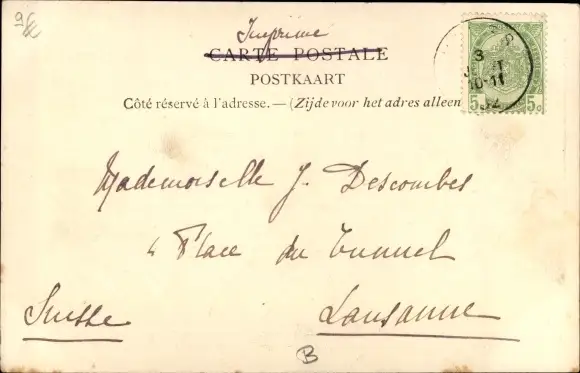 Imprimé
CARTE POSTALE
POSTKAART
Côté réservé à l'adresse. — (Zijde voor het adres alleen
3
10-11
5c 5c
Mademoiselle J. Descombes
4 Place du Tunnel
Suisse Lausanne
B